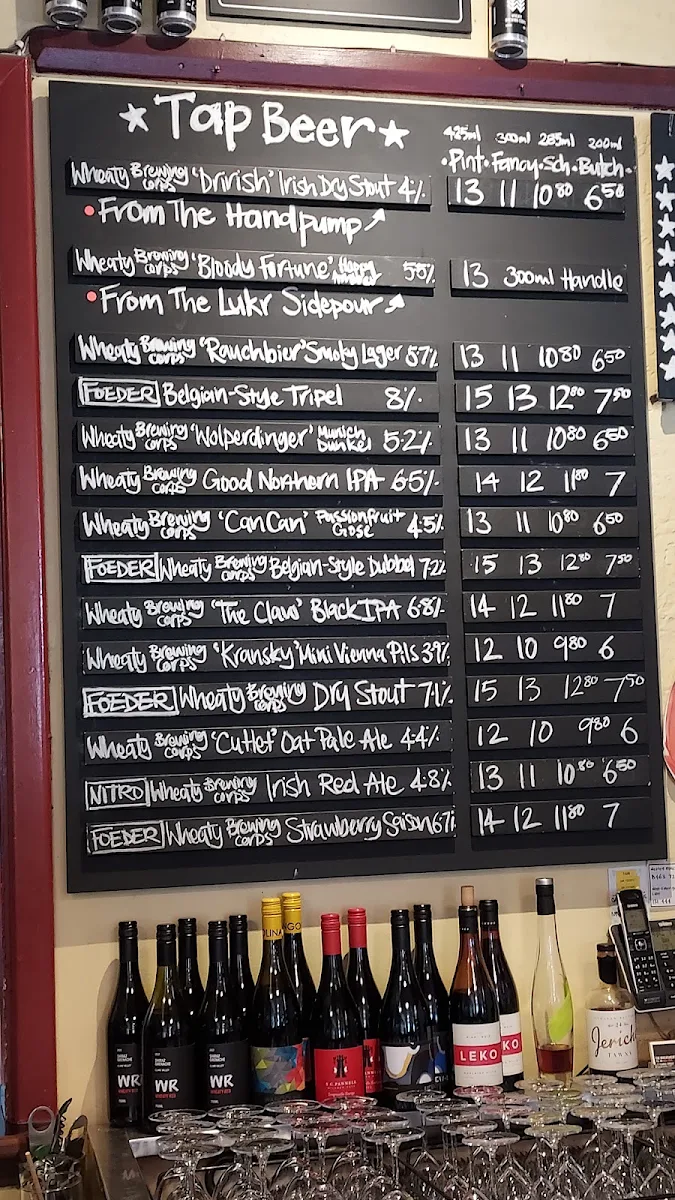 ★Tap Beer★
425ml 300ml 285ml 200ml
•Pint•Fancy•Sch•Butch•
Wheaty Brewing Corps 'Drirish' Irish Dry Stout 4% 13 11 10⁸⁰ 6⁵⁰
•From The Handpump
Wheaty Brewing Corps 'Bloody Fortune' Hoppy 5.8% 13 300ml Handle
•From The Lukr Sidepour
Wheaty Brewing Corps 'Rauchbier' Smoky Lager 5.7% 13 11 10⁸⁰ 6⁵⁰
FOEDER Belgian-Style Tripel 8% 15 13 12⁸⁰ 7⁵⁰
Wheaty Brewing Corps 'Wolperdinger' Munich Dunkel 5.2% 13 11 10⁸⁰ 6⁵⁰
Wheaty Brewing Corps Good Northern IPA 6.5% 14 12 11⁸⁰ 7
Wheaty Brewing Corps 'Can Can' Passionfruit Gose 4.5% 13 11 10⁸⁰ 6⁵⁰
FOEDER Wheaty Brewing Corps Belgian-Style Dubbel 7.2% 15 13 12⁸⁰ 7⁵⁰
Wheaty Brewing Corps 'The Claw' Black IPA 6.8% 14 12 11⁸⁰ 7
Wheaty Brewing Corps 'Kransky' Mini Vienna Pils 3.9% 12 10 9⁸⁰ 6
FOEDER Wheaty Brewing Corps Dry Stout 7.1% 15 13 12⁸⁰ 7⁵⁰
Wheaty Brewing Corps 'Cutlet' Oat Pale Ale 4.4% 12 10 9⁸⁰ 6
NITRO Wheaty Brewing Corps Irish Red Ale 4.8% 13 11 10⁸⁰ 6⁵⁰
FOEDER Wheaty Brewing Corps Strawberry Saison 6.7% 14 12 11⁸⁰ 7
WR
WR
WR
LEKO
KO
Jerich
TAWNY